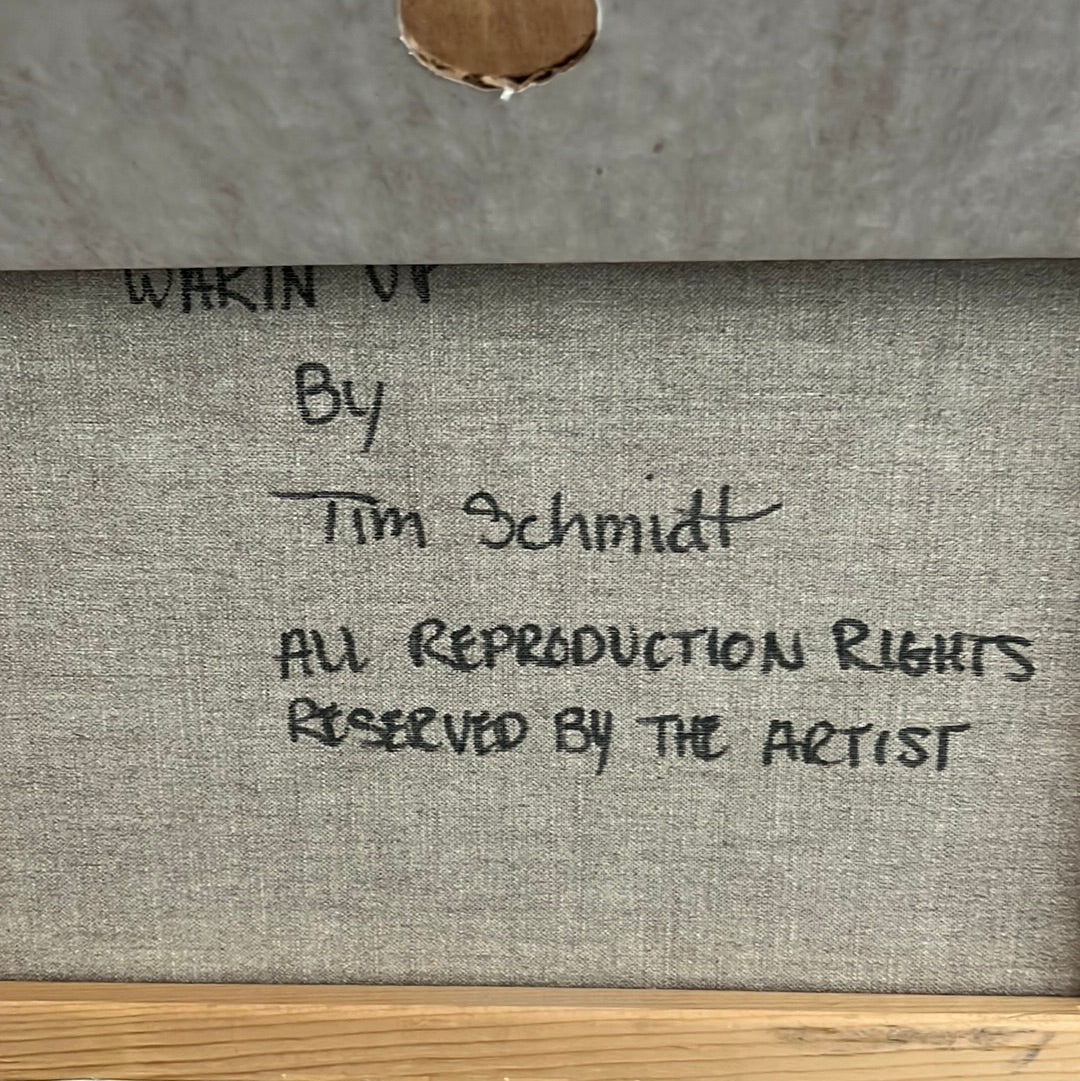 WAKIN UP
By
Tim Schmidt
ALL REPRODUCTION RIGHTS
RESERVED BY THE ARTIST